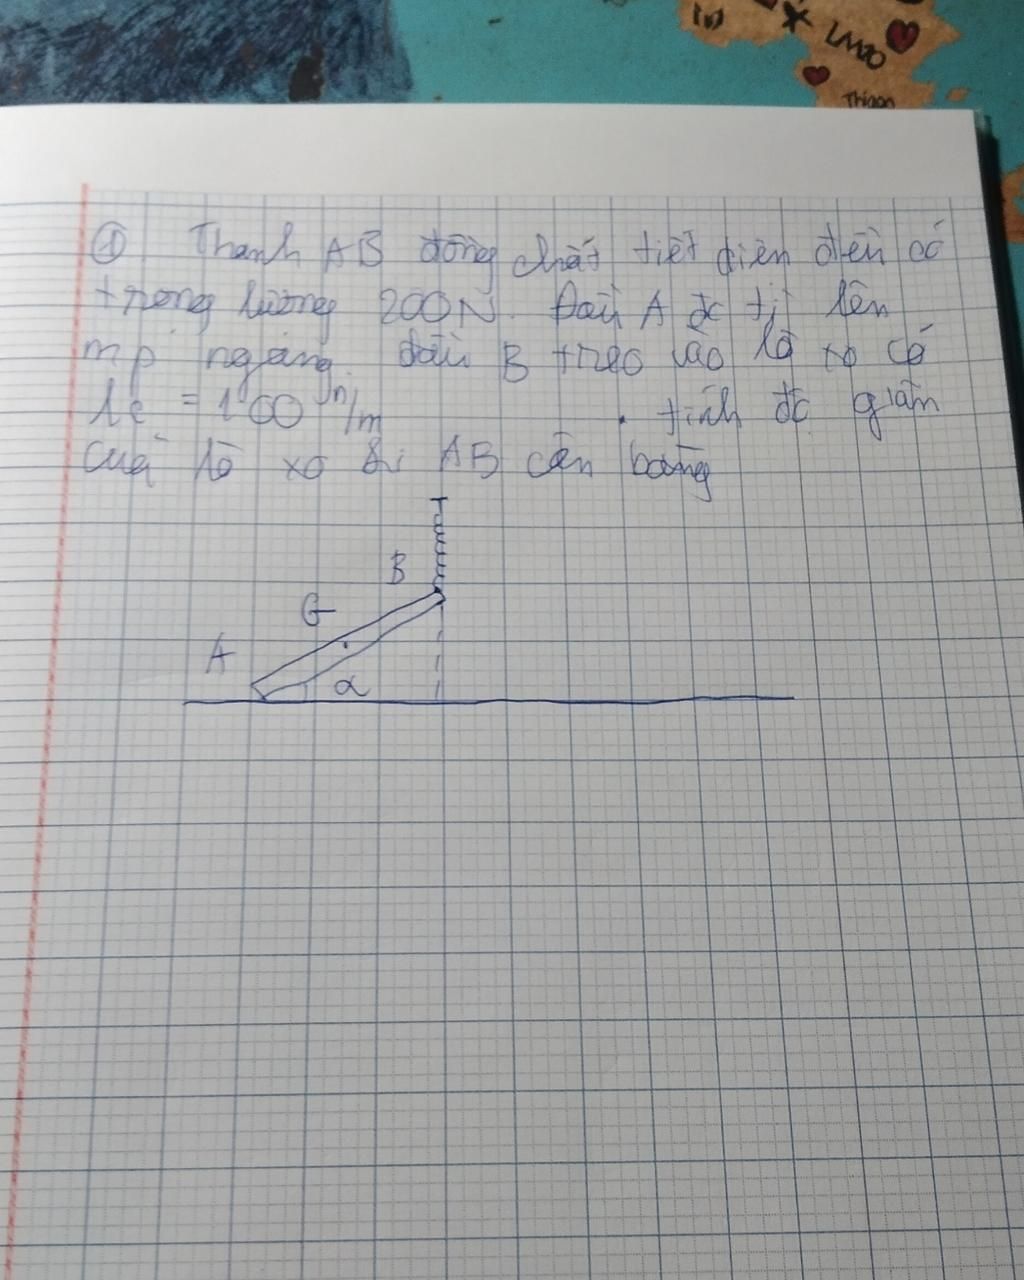 LM20
Thison
① Thanh AB đồng chất tiết diện đều có
trọng lượng 200N. Đầu A đc tì lên
mp ngang. đầu B treo vào lò xo có
k = 100 n/m . tính độ giãn
của lò xo khi AB cân bằng
B
G
A
α